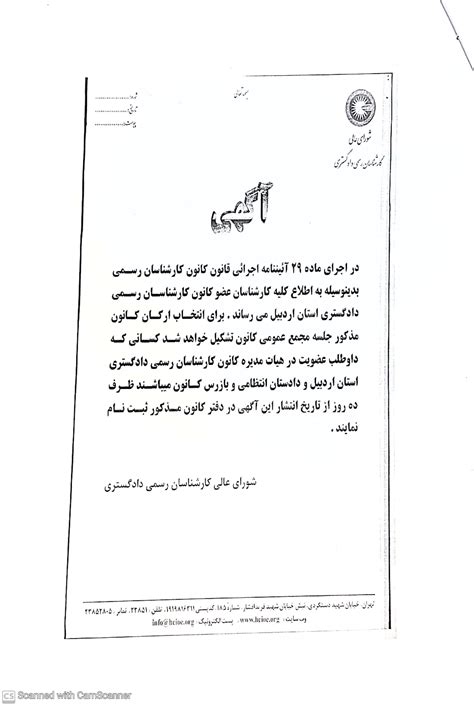 بسمه تعالی
شماره:
تاریخ:
پیوست:
شورای عالی
کارشناسان رسمی دادگستری
آگهی
در اجرای ماده ۲۹ آئیننامه اجرائی قانون کانون کارشناسان رسمی
بدینوسیله به اطلاع کلیه کارشناسان عضو کانون کارشناسان رسمی
دادگستری استان اردبیل می رساند . برای انتخاب ارکان کانون
مذکور جلسه مجمع عمومی کانون تشکیل خواهد شد کسانی که
داوطلب عضویت در هیات مدیره کانون کارشناسان رسمی دادگستری
استان اردبیل و دادستان انتظامی و بازرس کانون میباشند ظرف
ده روز از تاریخ انتشار این آگهی در دفتر کانون مذکور ثبت نام
نمایند .
شورای عالی کارشناسان رسمی دادگستری
تهران، خیابان شهید دستگردی، نبش خیابان شهید فرید افشار، شماره ۱۸۵، کدپستی ۱۹۱۹۸۱۶۳۱۱، تلفن: ۲۳۸۵۱، نمابر: ۲۳۸۵۲۸۰۵
وب سایت: www.hcioe.org، پست الکترونیک: info@hcioe.org
CS Scanned with CamScanner